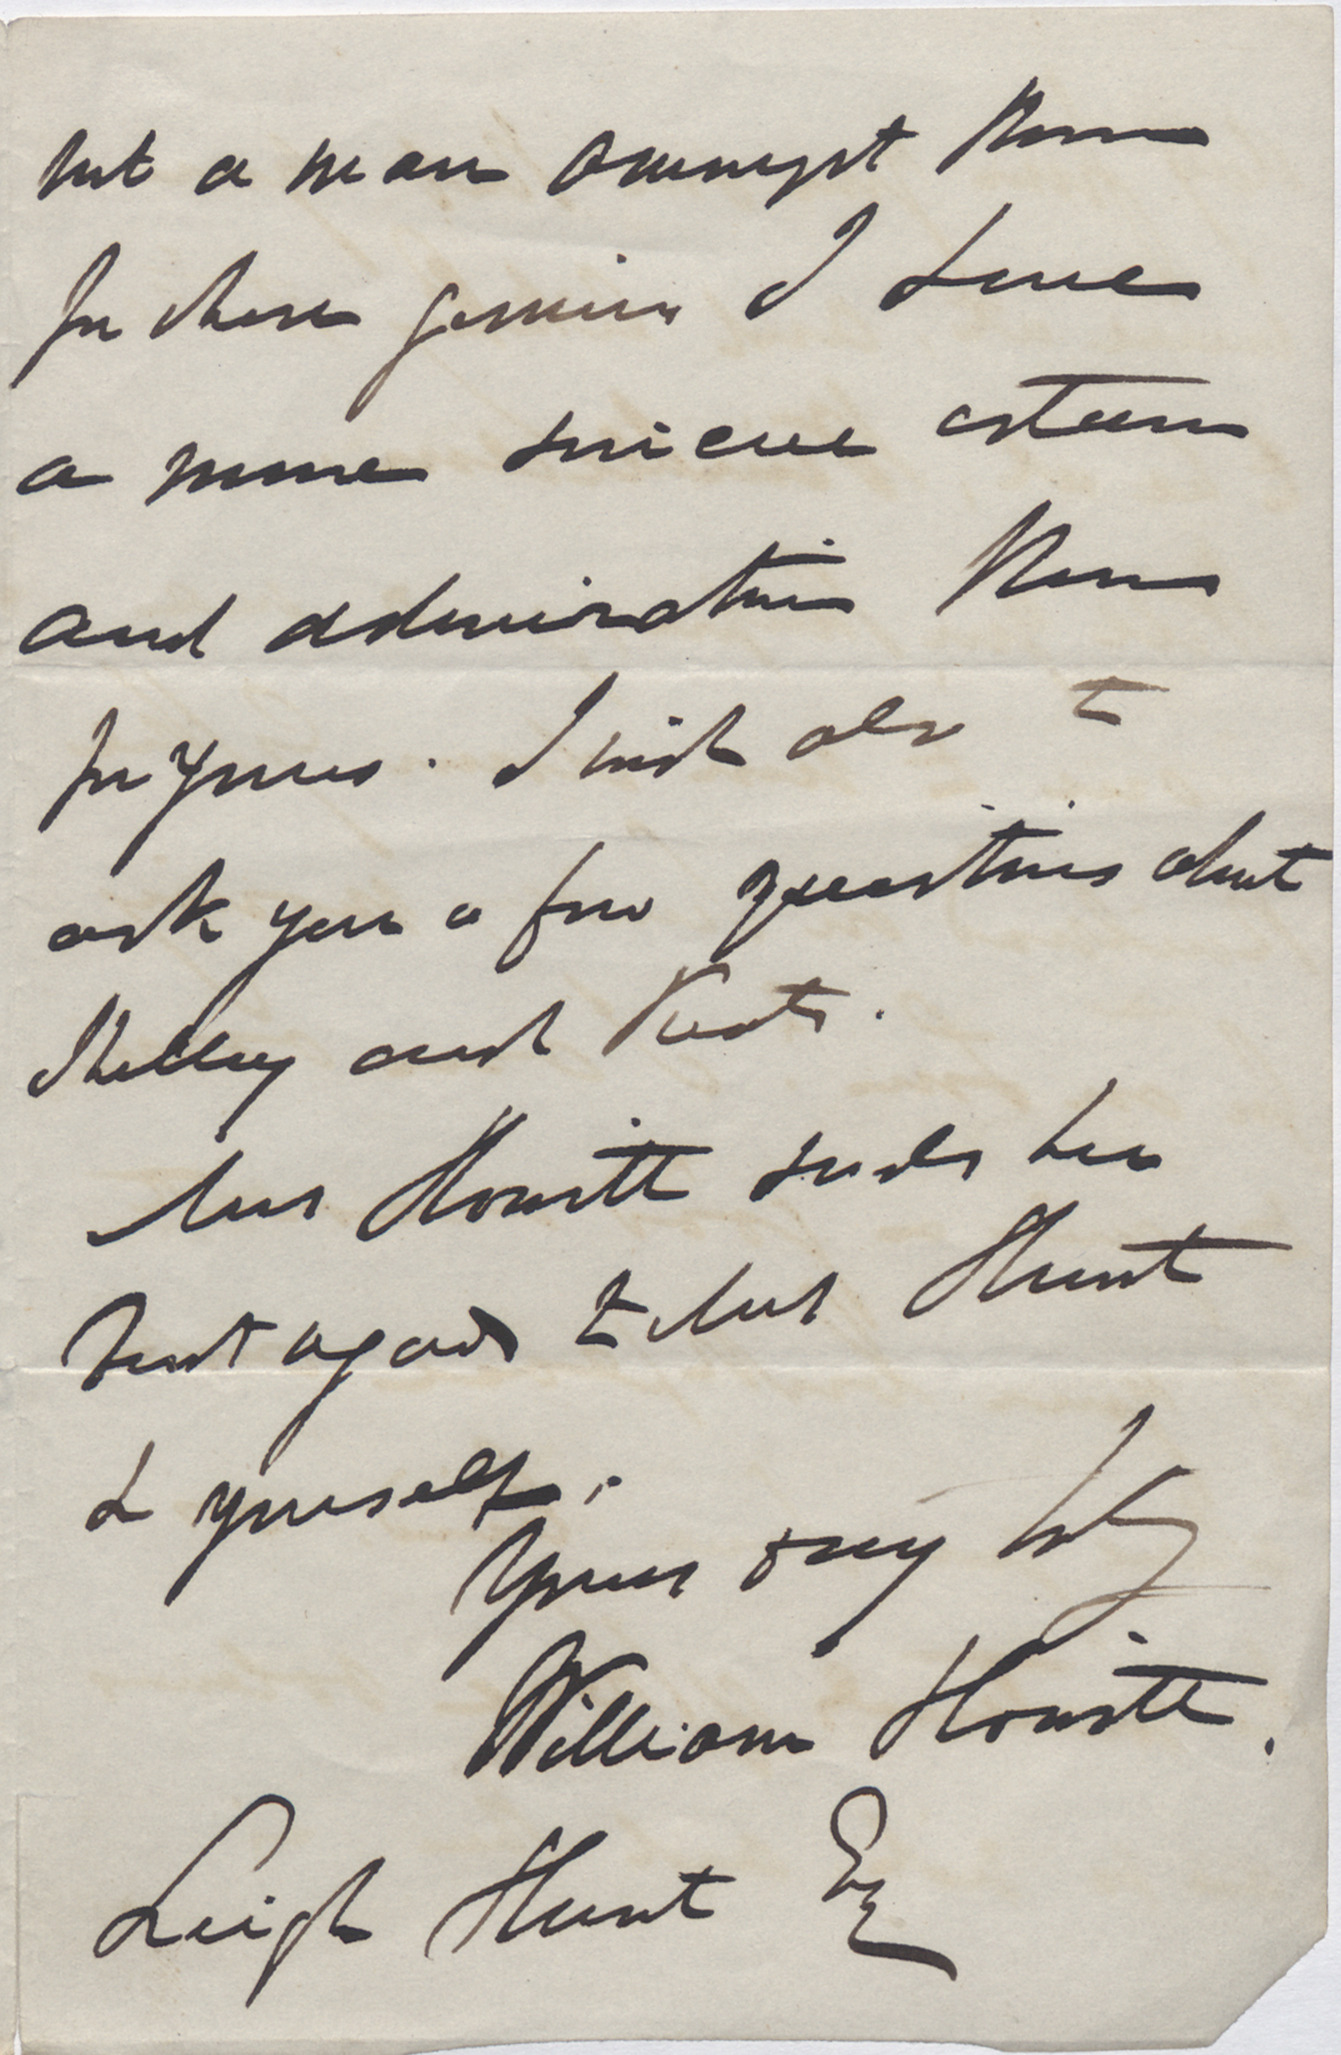 not a man amongst them
for whose genius I have
a more sincere esteem
and admiration than
for yours. I wish also to
ask you a few questions about
Shelley and Keats.
Mrs Howitt sends her
best regards to Mrs Hunt
& yourself.
Yours very truly
William Howitt.
Leigh Hunt Esq